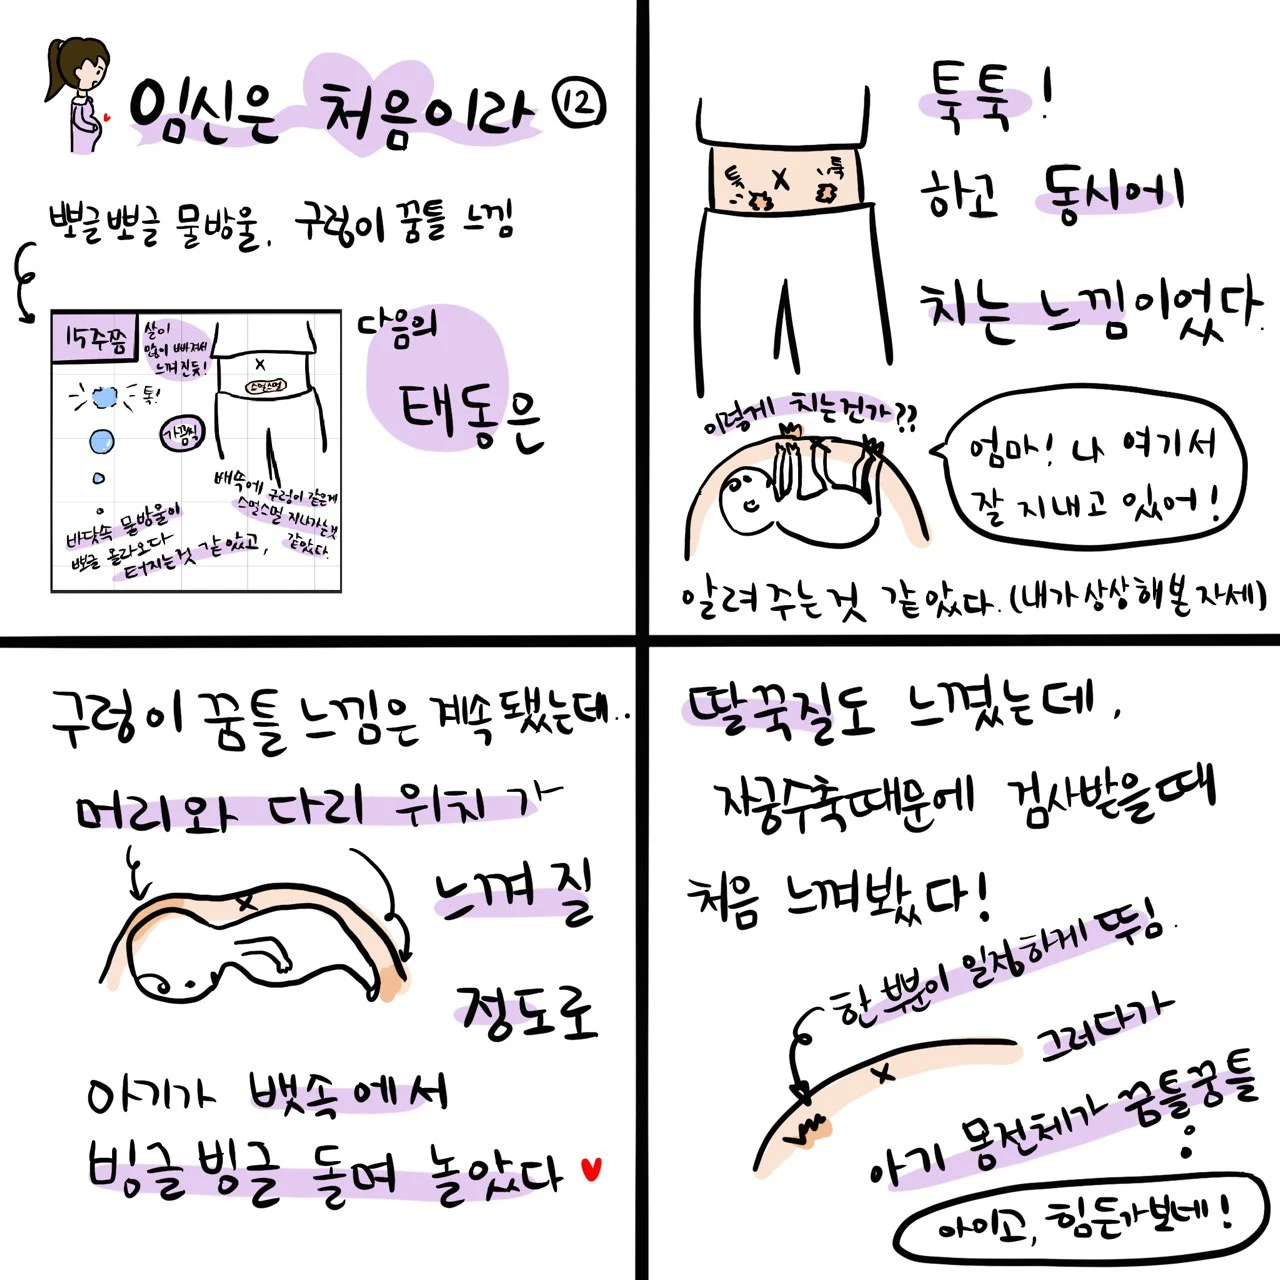 임신은 처음이라 ⑫
뽀글뽀글 물방울, 구렁이 꿈틀 느낌
15주쯤
살이
많이 빠져서
느껴진듯!
톡!
가끔씩
X
스멀스멀
배속에 구렁이 같은게
스멀스멀 지나가는것
같았다.
바닷속 물방울이
뽀글 올라오다
터지는것 같았고,
다음의
태동은
툭툭!
하고 동시에
치는 느낌이었다.
툭
X
툭
이렇게 치는건가??
엄마! 나 여기서
잘 지내고 있어!
알려주는것 같았다. (내가 상상해본 자세)
구렁이 꿈틀 느낌은 계속 됐는데..
머리와 다리 위치가
느껴질
정도로
X
아기가 뱃속에서
빙글빙글 돌며 놀았다
딸꾹질도 느꼈는데,
자궁수축때문에 검사받을때
처음 느껴봤다!
한 부분이 일정하게 뚜임.
X
그러다가
아기 몽전체가 꿈틀꿍틀
아이고, 힘든가보네!